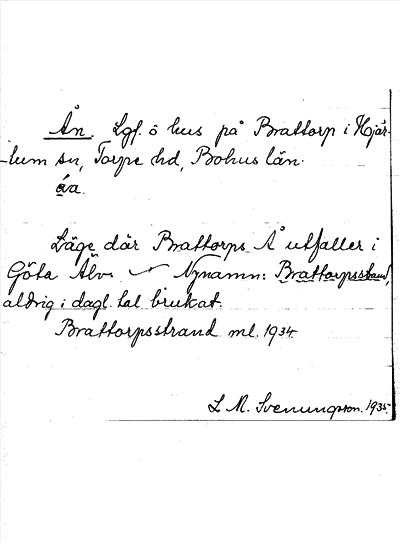 Ån. Lgf. o hus på Brattorp i Hjär-
-tum sn, Torpe hd, Bohus län.
åa.
Läge där Brattorps Å utfaller i
Göta Älv. Nynamn: Brattorpsstrand,
aldrig i dagl. tal brukat.
Brattorpsstrand ml. 1934
L M. Svenungsson. 1935.